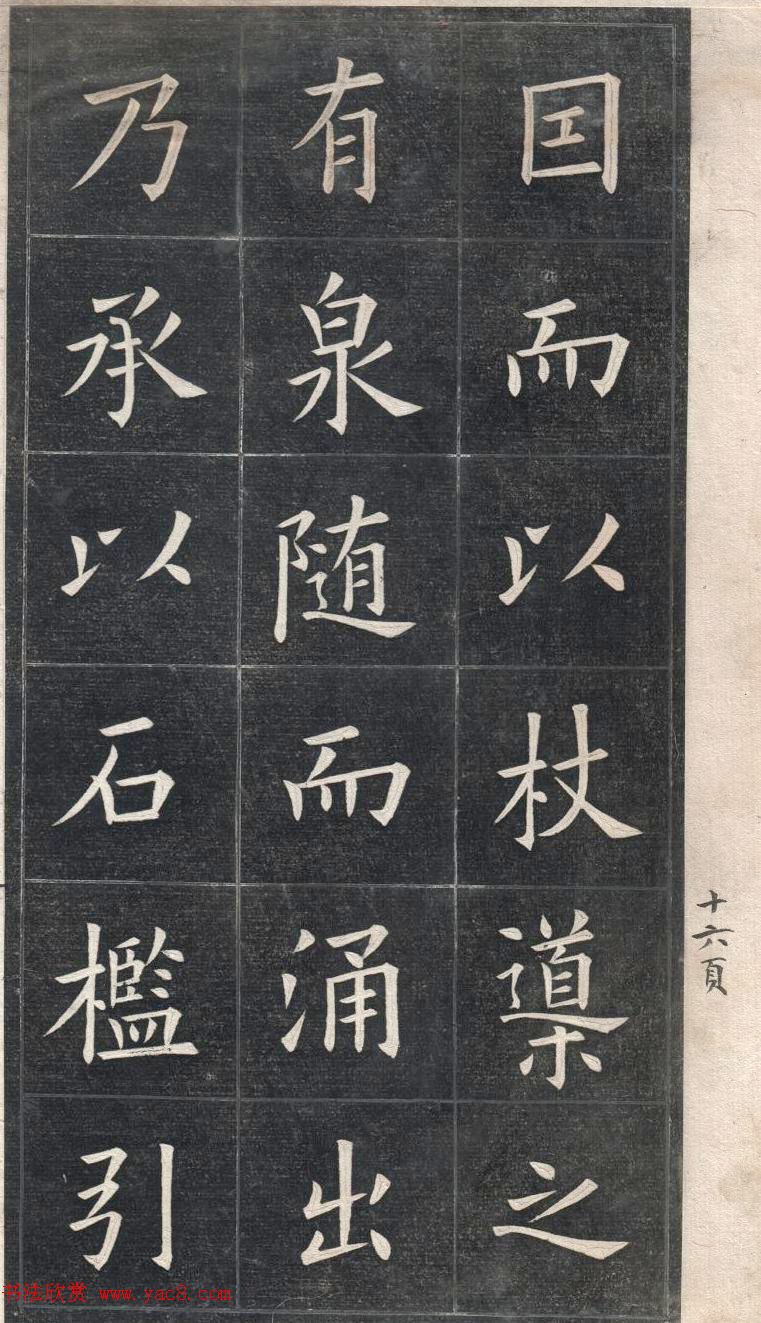 囙而以杖導之
有泉随而涌出
乃承以石檻引
十六頁
书法欣赏 www.yac8.com